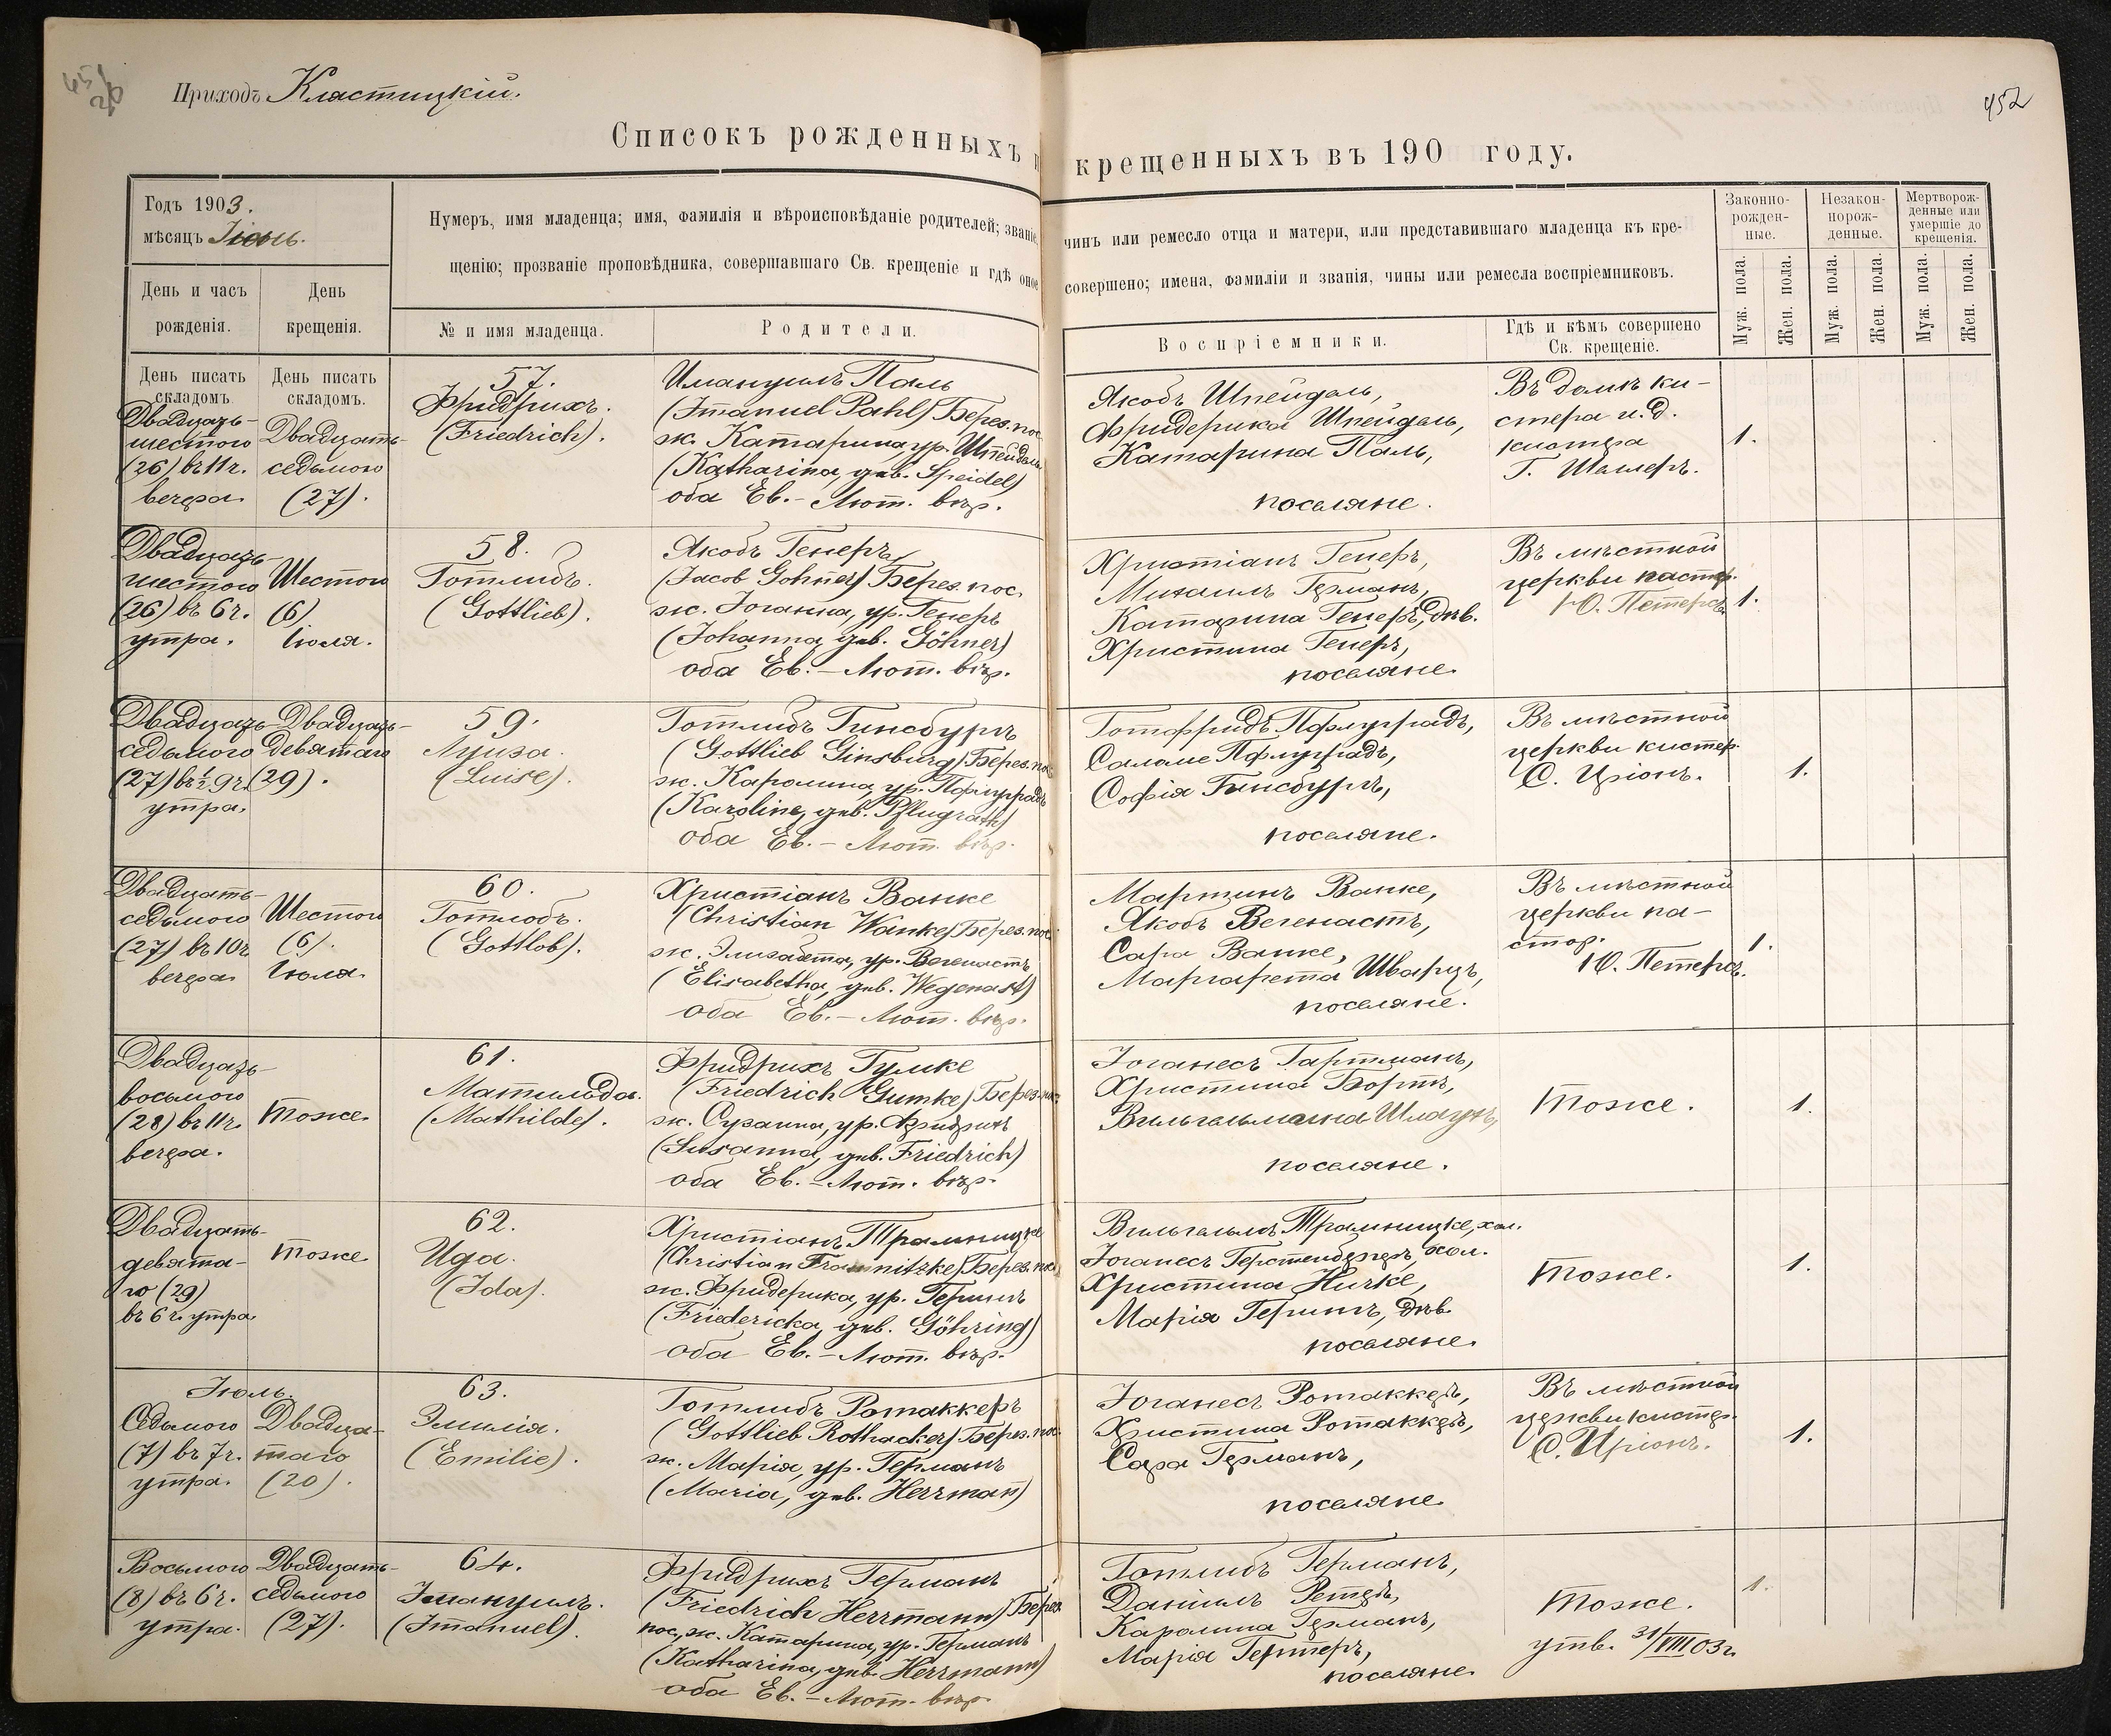 452
Приходъ Кластицкій.
Списокъ рожденныхъ и крещенныхъ въ 190 году.
Годъ 1903.
мѣсяцъ Іюнь.
Нумеръ, имя младенца; имя, фамилія и вѣроисповѣданіе родителей; званіе, чинъ или ремесло отца и матери, или представившаго младенца къ кре-
щенію; прозваніе проповѣдника, совершавшаго Св. крещеніе и гдѣ оное совершено; имена, фамиліи и званія, чины или ремесла воспріемниковъ.
Законно-
рожден-
ные.
Незакон-
норож-
денные.
Мертворож-
денные или
умершіе до
крещенія.
День и часъ
рожденія.
День
крещенія.
№ и имя младенца.
Родители.
Воспріемники.
Гдѣ и кѣмъ совершено
Св. крещеніе.
Муж. пола.
Жен. пола.
Муж. пола.
Жен. пола.
Муж. пола.
Жен. пола.
День писать
складомъ.
День писать
складомъ.
Двадцать-
шестого
(26) въ 11 ч.
вечера.
Двадцать-
седьмого
(27).
57.
Фридрихъ.
(Friedrich).
Имануилъ Паль
(Imanuel Pahl) Берез. пос.
ж. Катарина, ур. Шпейдель
(Katharina, geb. Speidel)
оба Ев.-Лют. вѣр.
Якобъ Шпейдель,
Фридерика Шпейдель,
Катарина Паль,
поселяне.
Въ домѣ ки-
стера и. д.
кистера
Г. Шаллеръ.
1.
Двадцать-
шестого
(26) въ 6 ч.
утра.
Шестого
(6)
Іюля.
58.
Готлибъ.
(Gottlieb).
Якобъ Генеръ
(Jacob Gohner) Берез. пос.
ж. Іоганна, ур. Генеръ
(Johanna, geb. Göhner)
оба Ев.-Лют. вѣр.
Христіанъ Генеръ,
Михаилъ Германъ,
Катарина Генеръ, дѣв.
Христина Генеръ,
поселяне.
Въ мѣстной
церкви пастор.
Ю. Петерсъ.
1.
Двадцать-
седьмого
(27) въ ½ 9 ч.
утра.
Двадцать-
девятаго
(29).
59.
Луиза.
(Luise).
Готлибъ Гинсбургъ
(Gottlieb Ginsburg) Берез. пос.
ж. Каролина, ур. Пфлуградъ
(Karoline, geb. Pflugrath)
оба Ев.-Лют. вѣр.
Готфридъ Пфлуградъ,
Саломе Пфлуградъ,
Софія Гинсбургъ,
поселяне.
Въ мѣстной
церкви кистер.
С. Цріонъ.
1.
Двадцать-
седьмого
(27) въ 10 ч.
вечера.
Шестого
(6).
Іюля.
60.
Готлобъ.
(Gottlob).
Христіанъ Ванке
(Christian Wanke) Берез. пос.
ж. Элизабета, ур. Вегенастъ
(Elisabetha, geb. Wegenast)
оба Ев.-Лют. вѣр.
Мартинъ Ванке,
Якобъ Вегенастъ,
Сара Ванке,
Маргарета Шварцъ,
поселяне.
Въ мѣстной
церкви па-
стор.
Ю. Петерсъ.
1.
Двадцать-
восьмого
(28) въ 11 ч.
вечера.
Тоже.
61.
Матильда.
(Mathilde).
Фридрихъ Гумке
(Friedrich Gumke) Берез. пос.
ж. Сузанна, ур. Фридрихъ
(Susanna, geb. Friedrich)
оба Ев.-Лют. вѣр.
Іоганесъ Гартманъ,
Христина Бортъ,
Вильгельмина
поселяне.
Тоже.
1.
Двадцать-
девята-
го (29)
въ 6 ч. утра.
Тоже
62.
Ида.
(Ida).
Христіанъ Трамницке
(Christian Tramnitzke) Берез. пос.
ж. Фридерика, ур. Герингъ
(Friedericka, geb. Göhring)
оба Ев.-Лют. вѣр.
Вильгельмъ Трамницке, хол.
Іоганесъ Герстенбергеръ, хол.
Христина Ничке,
Марія Герингъ, дѣв.
поселяне.
Тоже.
1.
Іюль.
Седьмого
(7) въ 7 ч.
утра.
Двадца-
таго
(20).
63.
Эмилія.
(Emilie).
Готлибъ Ротаккеръ
(Gottlieb Rothacker) Берез. пос.
ж. Марія, ур. Германъ
(Maria, geb. Herrmann)
Іоганесъ Ротаккеръ,
Христина Ротаккеръ,
Сара Германъ,
поселяне.
Въ мѣстной
церкви кистер.
С. Цріонъ.
1.
Восьмого
(8) въ 6 ч.
утра.
Двадцать-
седьмого
(27).
64.
Имануилъ.
(Imanuel).
Фридрихъ Германъ
(Friedrich Herrmann) Берез.
пос., ж. Катарина, ур. Германъ
(Katharina, geb. Herrmann)
оба Ев.-Лют. вѣр.
Готлибъ Германъ,
Даніилъ Ретеръ,
Каролина Германъ,
Марія Гертеръ,
поселяне.
Тоже.
утв. 31/VIII 03 г.
1.